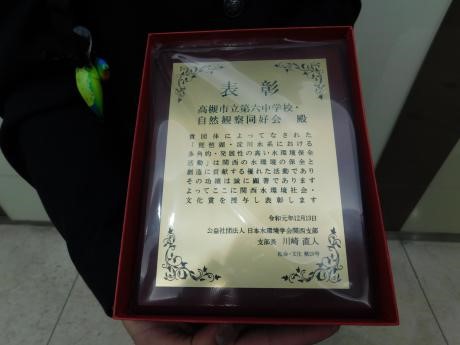 表彰
高槻市立第六中学校・
自然観察同好会 殿
貴団体によってなされた
「琵琶湖・淀川水系における
多角的・発展性の高い水環境保全
活動」は関西の水環境の保全と
創造に貢献する優れた活動であり
その功績は誠に顕著であります
よってここに関西水環境社会・
文化賞を授与し表彰します
令和元年12月13日
公益社団法人 日本水環境学会関西支部
支部長 川崎 直人